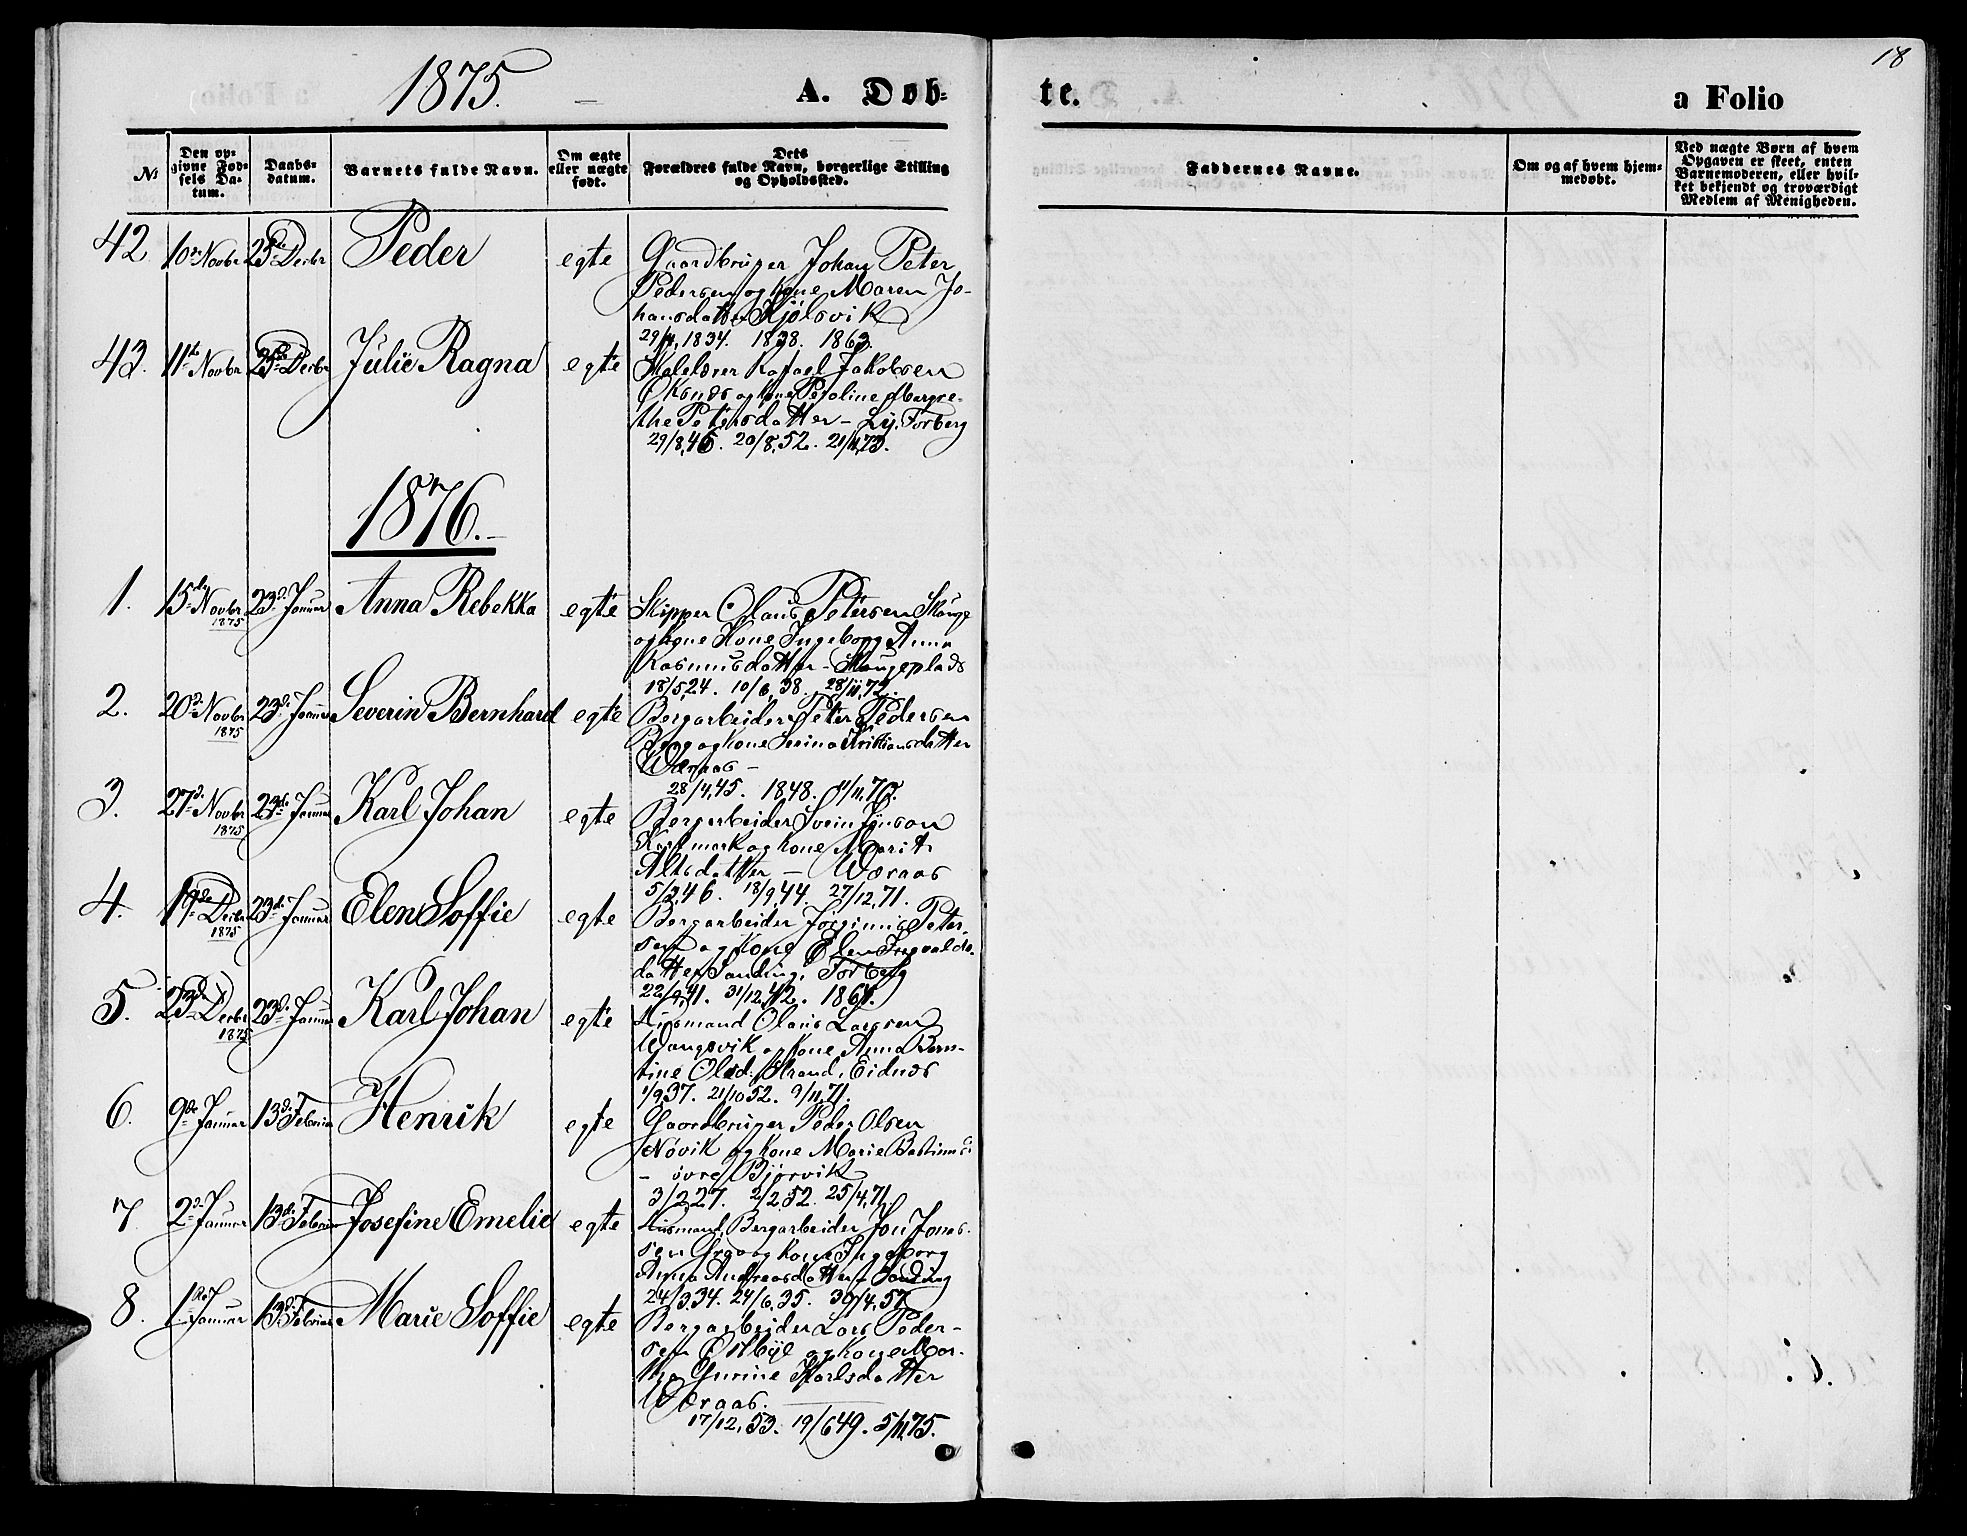 1875.
A. Døb-
te.
a Folio
18
№
Den op-
givne Fød-
sels Da-
tum.
Daabs-
datum.
Barnets fulde Navn.
Om ægte
eller uægte
født.
Dets
Forældres fulde Navn, borgerlige Stilling
og Opholdssted.
Faddernes Navne.
Om og af hvem hjem-
medøbt.
Ved uægte Børn af hvem
Opgaven er skeet, enten
Barnemoderen, eller hvil-
ket bekjendt og troværdigt
Medlem af Menigheden.
42 10de Novbr 25de Decbr Peder egte Gaardbruger Johan Peter
Pedersen og kone Maren Jo-
hansdatter Kjølsvik
1834. 1838. 1863.
43. 11te Novbr Decbr Julie Ragna egte Skolelærer Rafael Jakobsen
Øksnes og kone Peroline Margre-
the Petersdatter – Forberg
29/8,46. 20/8,52. 21/11,73.
1876.
1. 15de Novbr 1875 23de Januar Anna Rebekka egte Skipper Olaus Petersen Skauge
og kone Kone Ingeborg Anna
Rasmusdatter – Skaugeplads
18/5,24. 10/6,38. 28/11,72.
2. 20de Novbr 1875 23de Januar Severin Bernhard egte Bergarbeider Peter Pedersen
Berg og kone Serina Kristiansdatter
Wæraas –
28/4,45. 1848.
3. 27de Novbr 1875 23de Januar Karl Johan egte Bergarbeider Svein Jonson
og kone Marit
datter – Wæraas
5/2,46. 18/9,44. 27/12,71.
4. 19de Decbr 1875 23de Januar Elen Soffie egte Bergarbeider Jørginus Peter-
sen og Kone Elen
datter Sanding, Forberg
22/9,41. 31/12,42.
5. 23de Decbr 1875 23de Januar Karl Johan egte Husmand Olaus Larssen
Wangsvik og kone Anna Bern-
tine Olsd: Strand, Eidnes
1/9,37. 21/10 52.
6. 9de Januar 13de Februar Henrik egte Gaardbruger Peder Olsen
Nøvik og kone Marie
– øvre Bjørvik
3/2,27. 2/2,52. 25/4,71.
7. 2de Januar 13de Februar Josefine Emelie egte Husmand, Bergarbeider Jon Jonas-
sen og kone Ingeborg
Anna Andreasdatter Sanding
24/3,34. 24/6,35. 30/4,57.
8. 1ste Januar 13de Februar Marie Soffie egte Bergarbeider Lars Peder-
sen Østbye og kone Mar-
tha Gurine Karlsdatter
Wæraas.
17/12,53. 19/6 49. 5/11,75.